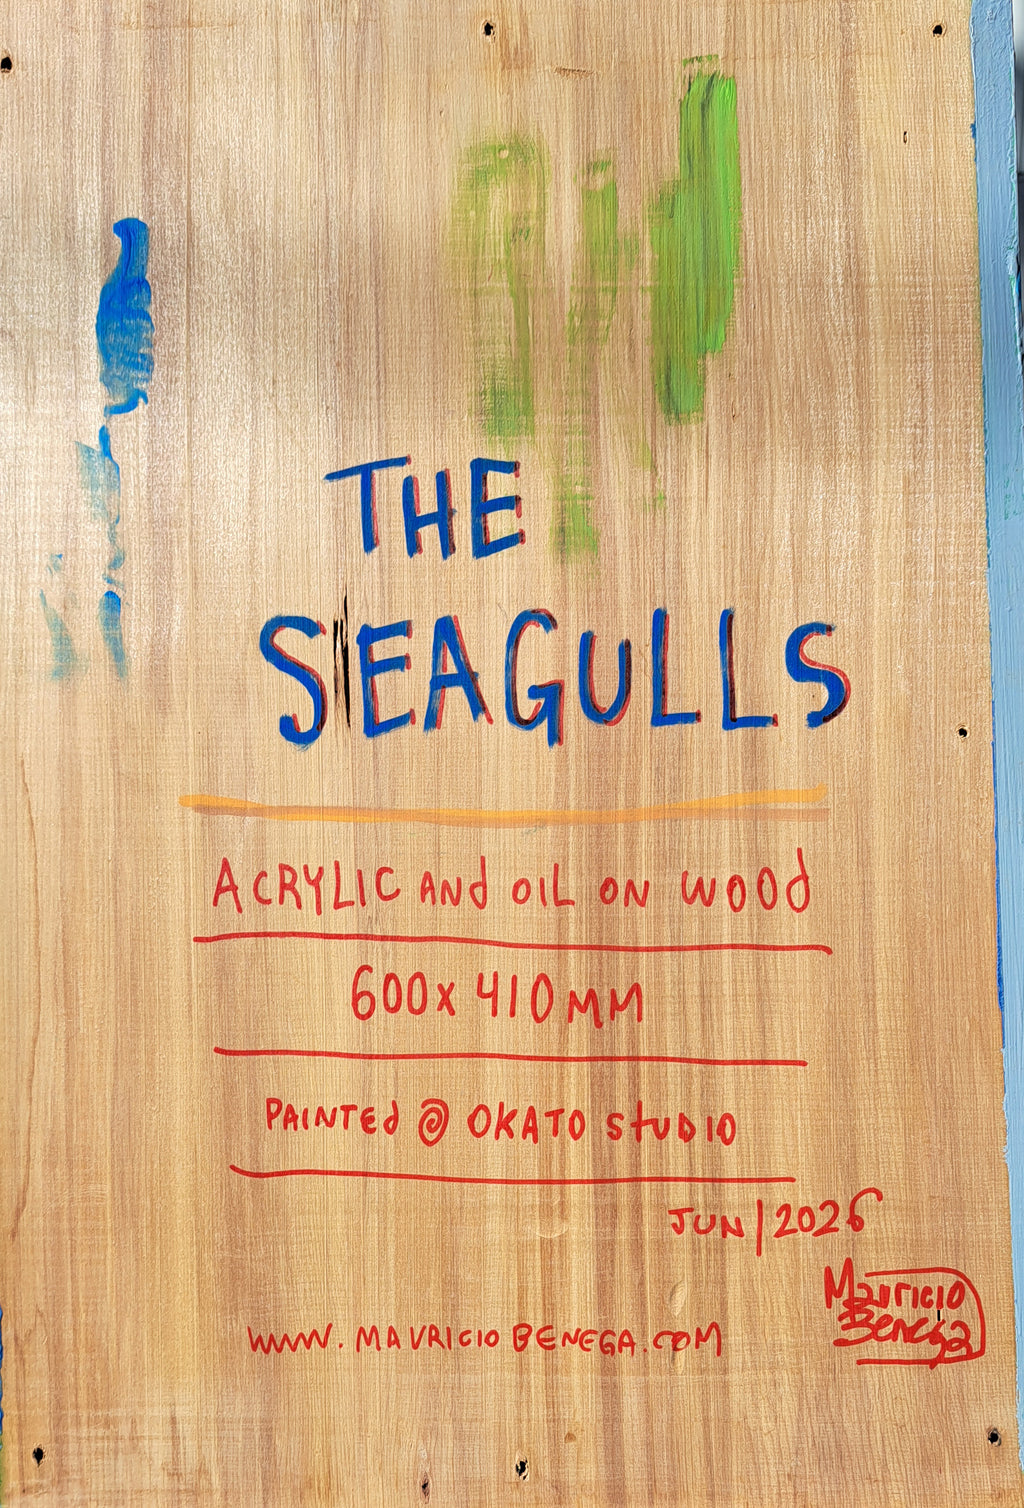 THE
SEAGULLS
ACRYLIC ANd OIL ON WOOd
600x410MM
PAINTEd @ OKATO StUDIO
JUN/2026
Mauricio
Benega
WWW.MAURICIOBENEGA.COM